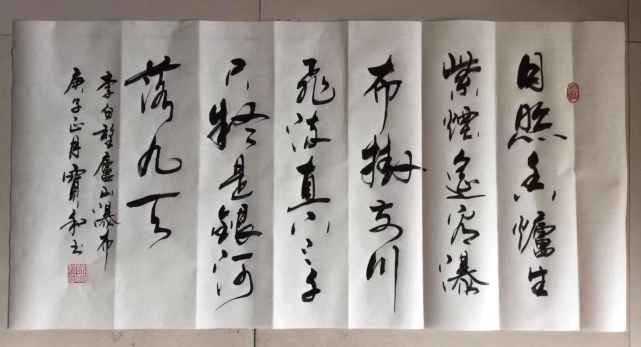 日照香爐生
紫煙遙看瀑
布掛前川
飛流直下三千
尺疑是銀河
落九天
李白望廬山瀑布
庚子正月寶和書